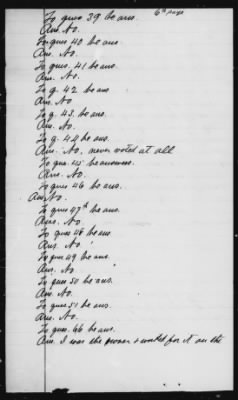 6th page
To ques 39 he ans.
Ans. No.
To ques 40 he ans.
Ans. No.
To ques. 41 he ans.
Ans. No
To q. 42 he ans
Ans. No
To q. 43. he ans.
Ans. No.
To q. 44 he ans.
Ans. No, never voted at all
To ques. 45 he answers.
Ans. No.
To ques 46 he ans.
Ans. No.
To ques 47th he ans.
Ans. No.
To ques 48 he ans
Ans. No.
To ques 49 he ans.
Ans. No
To ques 50 he ans.
Ans. No.
To ques 51 he ans.
Ans. No.
To ques. 66 he ans.
Ans. I was the owner & worked for it on the